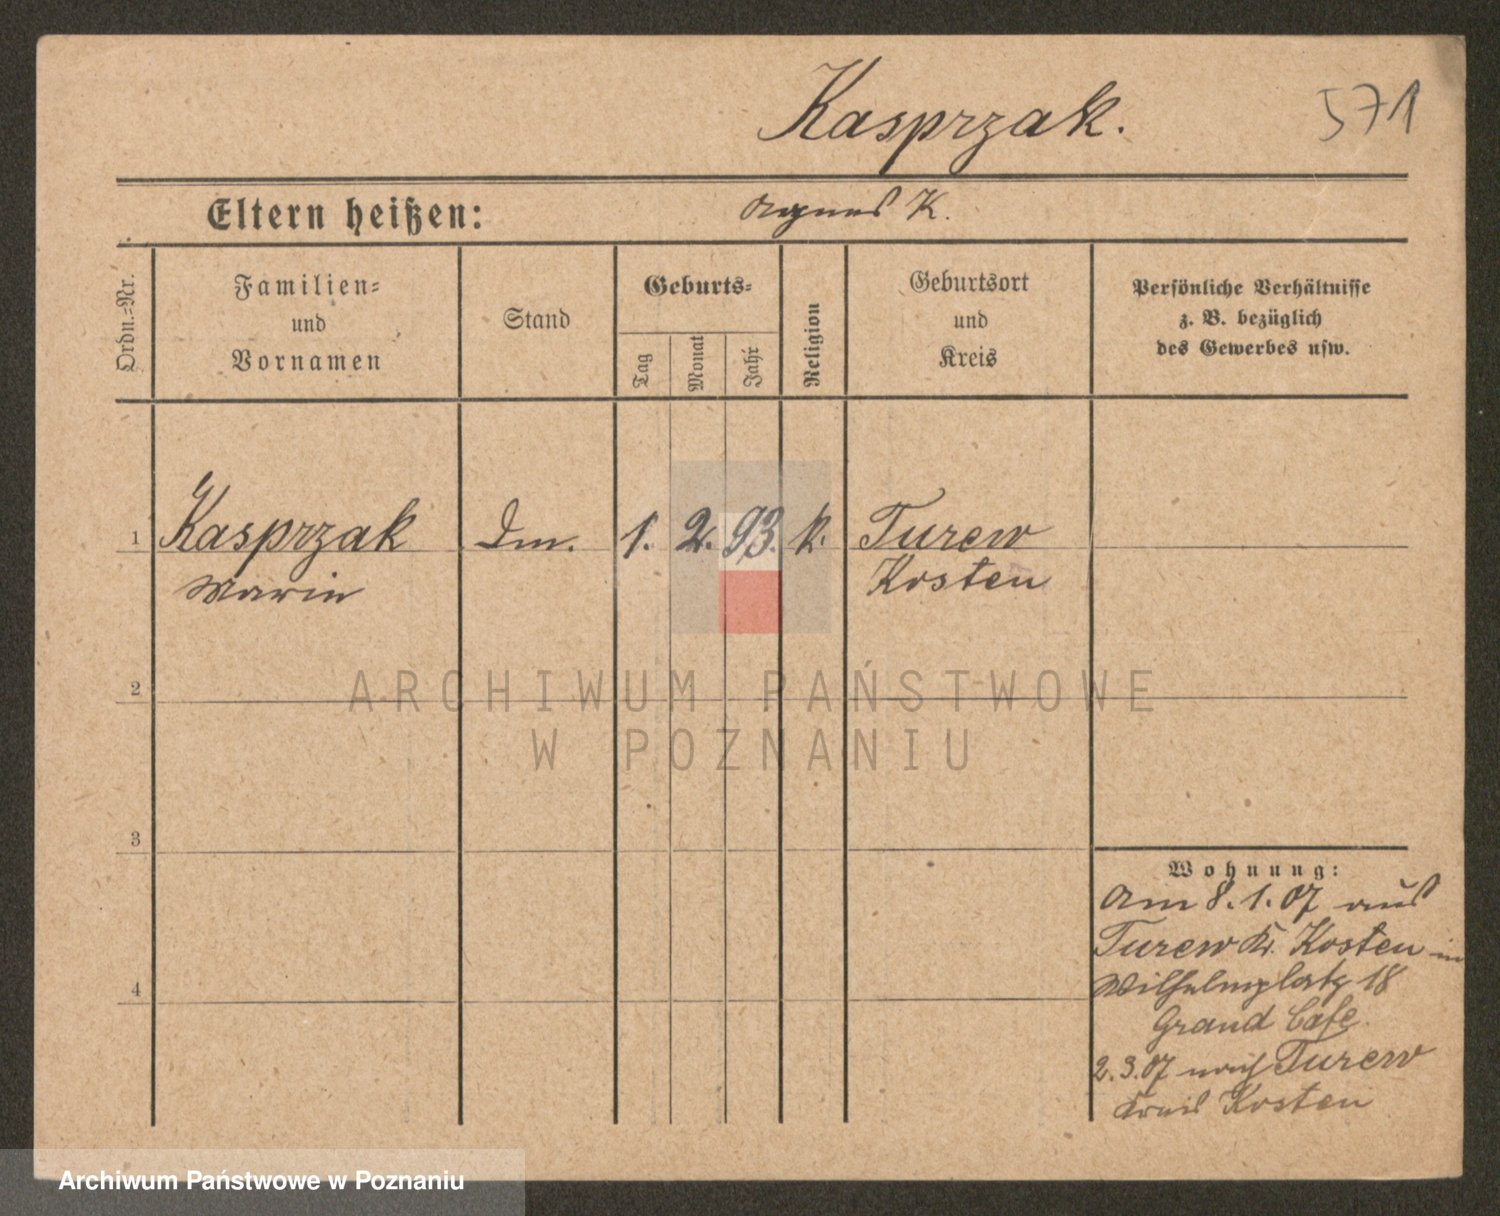 Kasprzak.
571
Eltern heißen:
Agnes K.
Ordn.-Nr.
Familien-
und
Vornamen
Stand
Geburts-
Tag
Monat
Jahr
Religion
Geburtsort
und
Kreis
Persönliche Verhältnisse
z. B. bezüglich
des Gewerbes usw.
1 Kasprzak Dm. 1. 2. 93. k. Turew
Marie Kosten
2
ARCHIWUM PAŃSTWOWE
W POZNANIU
3
Wohnung:
Am 8.1.07 aus
Turew Kr. Kosten in
Wilhelmplatz 18
4
Grand Cafe.
2.3.07 nach Turew
Kreis Kosten
Archiwum Państwowe w Poznaniu